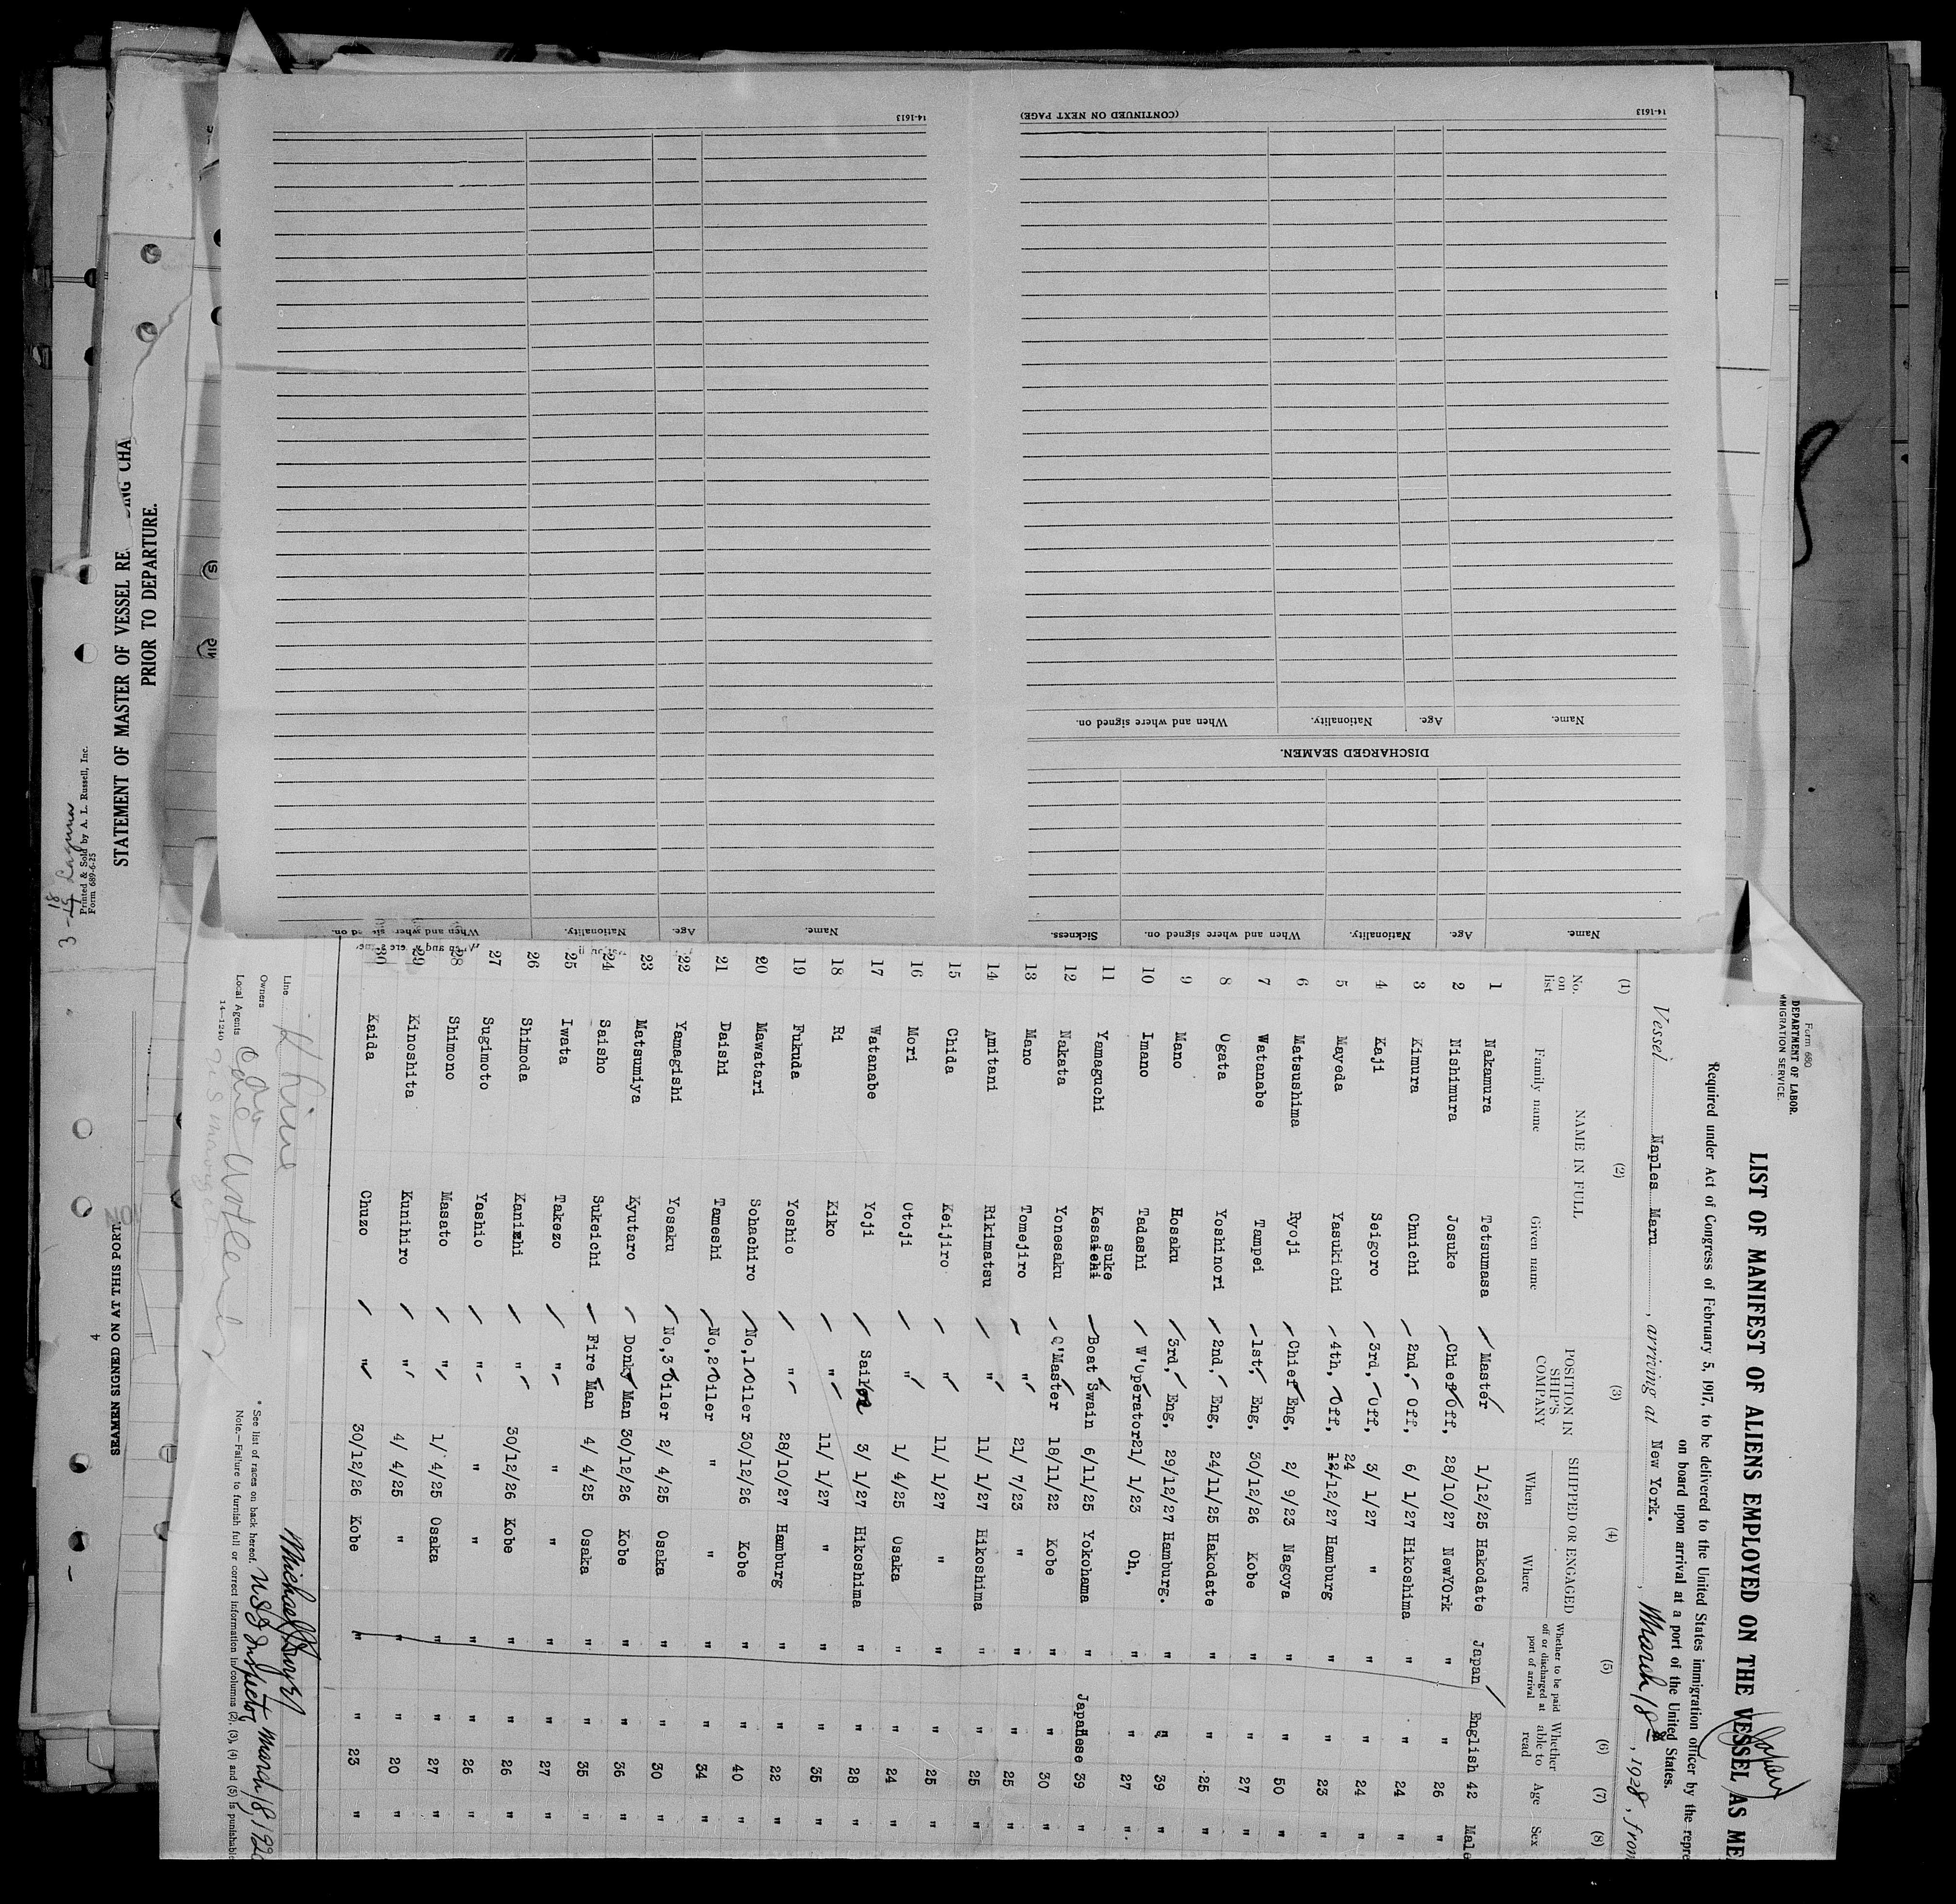 14-1613
(CONTINUED ON NEXT PAGE)
14-1613
Name. Age. Nationality. When and where signed on.
DISCHARGED SEAMEN.
Name. Age. Nationality. When and where signed on. Sickness.
Name. Age. Nationality. When and where signed on.
3-18 Laguna
Printed & Sold by A. L. Russell, Inc.
Form 689-6-25
STATEMENT OF MASTER OF VESSEL RE
PRIOR TO DEPARTURE.
SEAMEN SIGNED ON AT THIS PORT.
4
Form 680
DEPARTMENT OF LABOR
MMIGRATION SERVICE.
LIST OF MANIFEST OF ALIENS EMPLOYED ON THE VESSEL AS ME
Japan
Required under Act of Congress of February 5, 1917, to be delivered to the United States immigration officer by the repre
on board upon arrival at a port of the United States.
Vessel Naples Maru, arriving at New York., March 18th, 1928, from
(1) (2) (3) (4) (5) (6) (7) (8)
No. on list NAME IN FULL POSITION IN SHIP'S COMPANY SHIPPED OR ENGAGED Whether to be paid off or discharged at port of arrival Whether able to read Age Sex
Family name Given name When Where
1 Nakamura Tetsumasa Master 1/12/25 Hakodate Japan English 42 Male
2 Nishimura Josuke Chief Off, 28/10/27 NewYork " " 26 "
3 Kimura Chuichi 2nd, Off, 6/ 1/27 Hikoshima " " 24 "
4 Kaji Seigoro 3rd, Off, 3/ 1/27 " " " 24 "
5 Mayeda Yasukichi 4th, Off, 24/12/27 Hamburg " " 23 "
6 Matsushima Ryoji Chief Eng, 2/ 9/23 Nagoya " " 50 "
7 Watanabe Tampei 1st, Eng, 30/12/26 Kobe " " 27 "
8 Ogata Yoshinori 2nd, Eng, 24/11/25 Hakodate " " 25 "
9 Mano Hosaku 3rd, Eng, 29/12/27 Hamburg. " " 39 "
10 Imano Tadashi W'Operator 21/ 1/23 Oh, " " 27 "
11 Yamaguchi Kesasuke Boat Swain 6/11/25 Yokohama " Japanese 39 "
12 Nakata Yonesaku Q'Master 18/11/22 Kobe " " 30 "
13 Mano Tomejiro " 21/ 7/23 " " " 25 "
14 Amitani Rikimatsu " 11/ 1/27 Hikoshima " " 25 "
15 Chida Keijiro " 11/ 1/27 " " " 25 "
16 Mori Otoji " 1/ 4/25 Osaka " " 24 "
17 Watanabe Yoji Sailor 3/ 1/27 Hikoshima " " 28 "
18 Ri Kiko " 11/ 1/27 " " " 35 "
19 Fukuda Yoshio " 28/10/27 Hamburg " " 22 "
20 Mawatari Sohachiro No,1 Oiler 30/12/26 Kobe " " 40 "
21 Daishi Tameshi No,2 Oiler " " " " 34 "
22 Yamagishi Yosaku No,3 Oiler 2/ 4/25 Osaka " " 30 "
23 Matsumiya Kyutaro Donky Man 30/12/26 Kobe " " 36 "
24 Saisho Sukeichi Fire Man 4/ 4/25 Osaka " " 35 "
25 Iwata Takezo " " " " " 27 "
26 Shimoda Kanizhi " 30/12/26 Kobe " " 26 "
27 Sugimoto Yashio " " " " " 26 "
28 Shimono Masato " 1/ 4/25 Osaka " " 27 "
29 Kinoshita Kunihiro " 4/ 4/25 " " " 20 "
30 Kaida Chuzo " 30/12/26 Kobe " " 23 "
Line K Line
Owners
Local Agents
14-1240
Michael J Boyer
U S Inspector March 18, 192
* See list of races on back hereof.
Note.—Failure to furnish full or correct information in columns (2), (3), (4) and (5) is punishable